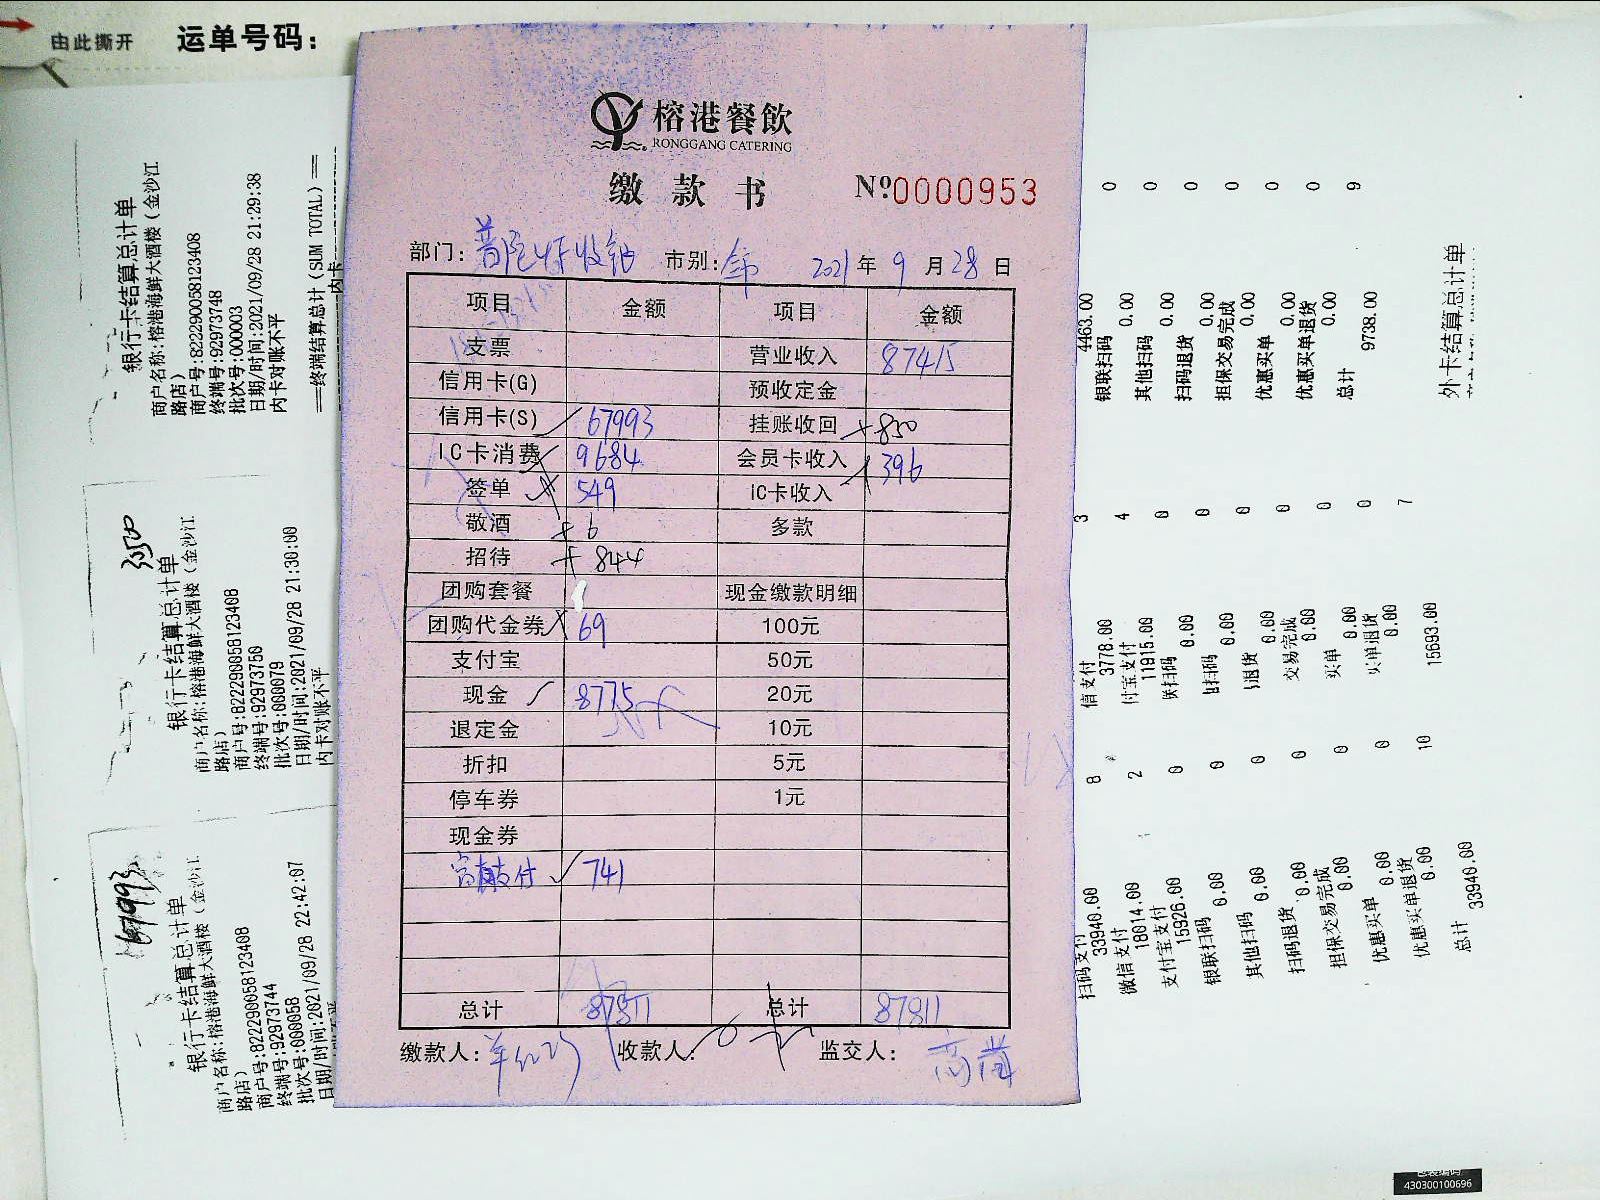 由此撕开 运单号码:
榕港餐飲
RONGGANG CATERING
缴款书 Nº0000953
部门: 普陀 收银 市别: 全市 2021 年 9 月 28 日
项目 金额 项目 金额
支票 营业收入 87415
信用卡(G) 预收定金
信用卡(S) 67993 挂账收回 +850
IC卡消费 9684 会员卡收入 396
签单 549 IC卡收入
敬酒 +6 多款
招待 +844
团购套餐 现金缴款明细
团购代金券 69 100元
支付宝 50元
现金 8775 20元
退定金 10元
折扣 5元
停车券 1元
现金券
支付 741
总计 87811 总计 87811
缴款人: 收款人: 监交人:
银行卡结算总计单
商户名称:榕港海鲜大酒楼(金沙江
路店)
商户号:822290058123408
终端号:92973748
批次号:000003
日期/时间:2021/09/28 21:29:38
内卡对账不平
==终端结算总计(SUM TOTAL)==
内卡
3050
银行卡结算总计单
商户名称:榕港海鲜大酒楼(金沙江
路店)
商户号:822290058123408
终端号:92973750
批次号:000079
日期/时间:2021/09/28 21:30:00
内卡对账不平
67993
银行卡结算总计单
商户名称:榕港海鲜大酒楼(金沙江
路店)
商户号:822290058123408
终端号:92973744
批次号:000058
日期/时间:2021/09/28 22:42:07
4463.00
银联扫码 0.00 0
其他扫码 0.00 0
扫码退货 0.00 0
担保交易完成 0.00 0
优惠买单 0.00 0
优惠买单退货 0.00 0
总计 9738.00 9
外卡结算总计单
信支付 3778.00 3
付宝支付 11915.00 4
扫码 0.00 0
扫码 0.00 0
退货 0.00 0
交易完成 0.00 0
买单 0.00 0
买单退货 0.00 0
15693.00 7
扫码支付 33940.00
微信支付 18014.00 8
支付宝支付 15926.00 2
银联扫码 0.00 0
其他扫码 0.00 0
扫码退货 0.00 0
担保交易完成 0.00 0
优惠买单 0.00 0
优惠买单退货 0.00
总计 33940.00 10
430300100696